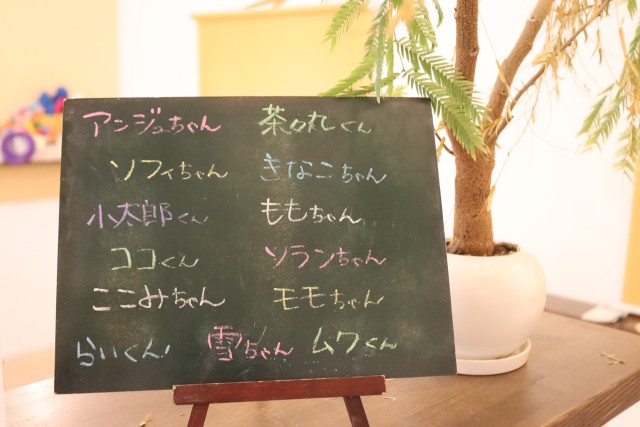 アンジュちゃん 茶々丸くん
ソフィちゃん きなこちゃん
小太郎くん ももちゃん
ココくん ソランちゃん
ここみちゃん モモちゃん
らいくん 雪ちゃん ムワくん